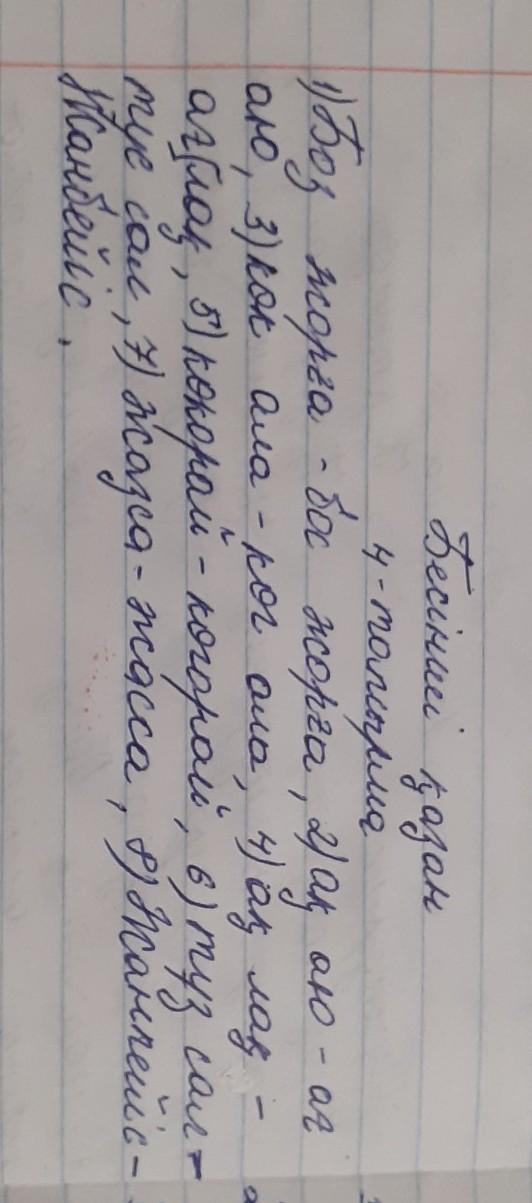 Бесінші қазан
4-тапсырма
1) Боз жорға - бос жорға, 2) ақ аю - ағ
аю, 3) көк ала - көг ала, 4) ақ лақ -
ағ лақ, 5) кокорай - когорай, 6) тұз сал -
тұс сал, 7) жазса - жасса, 8) Жанпейіс -
Жанбейіс.